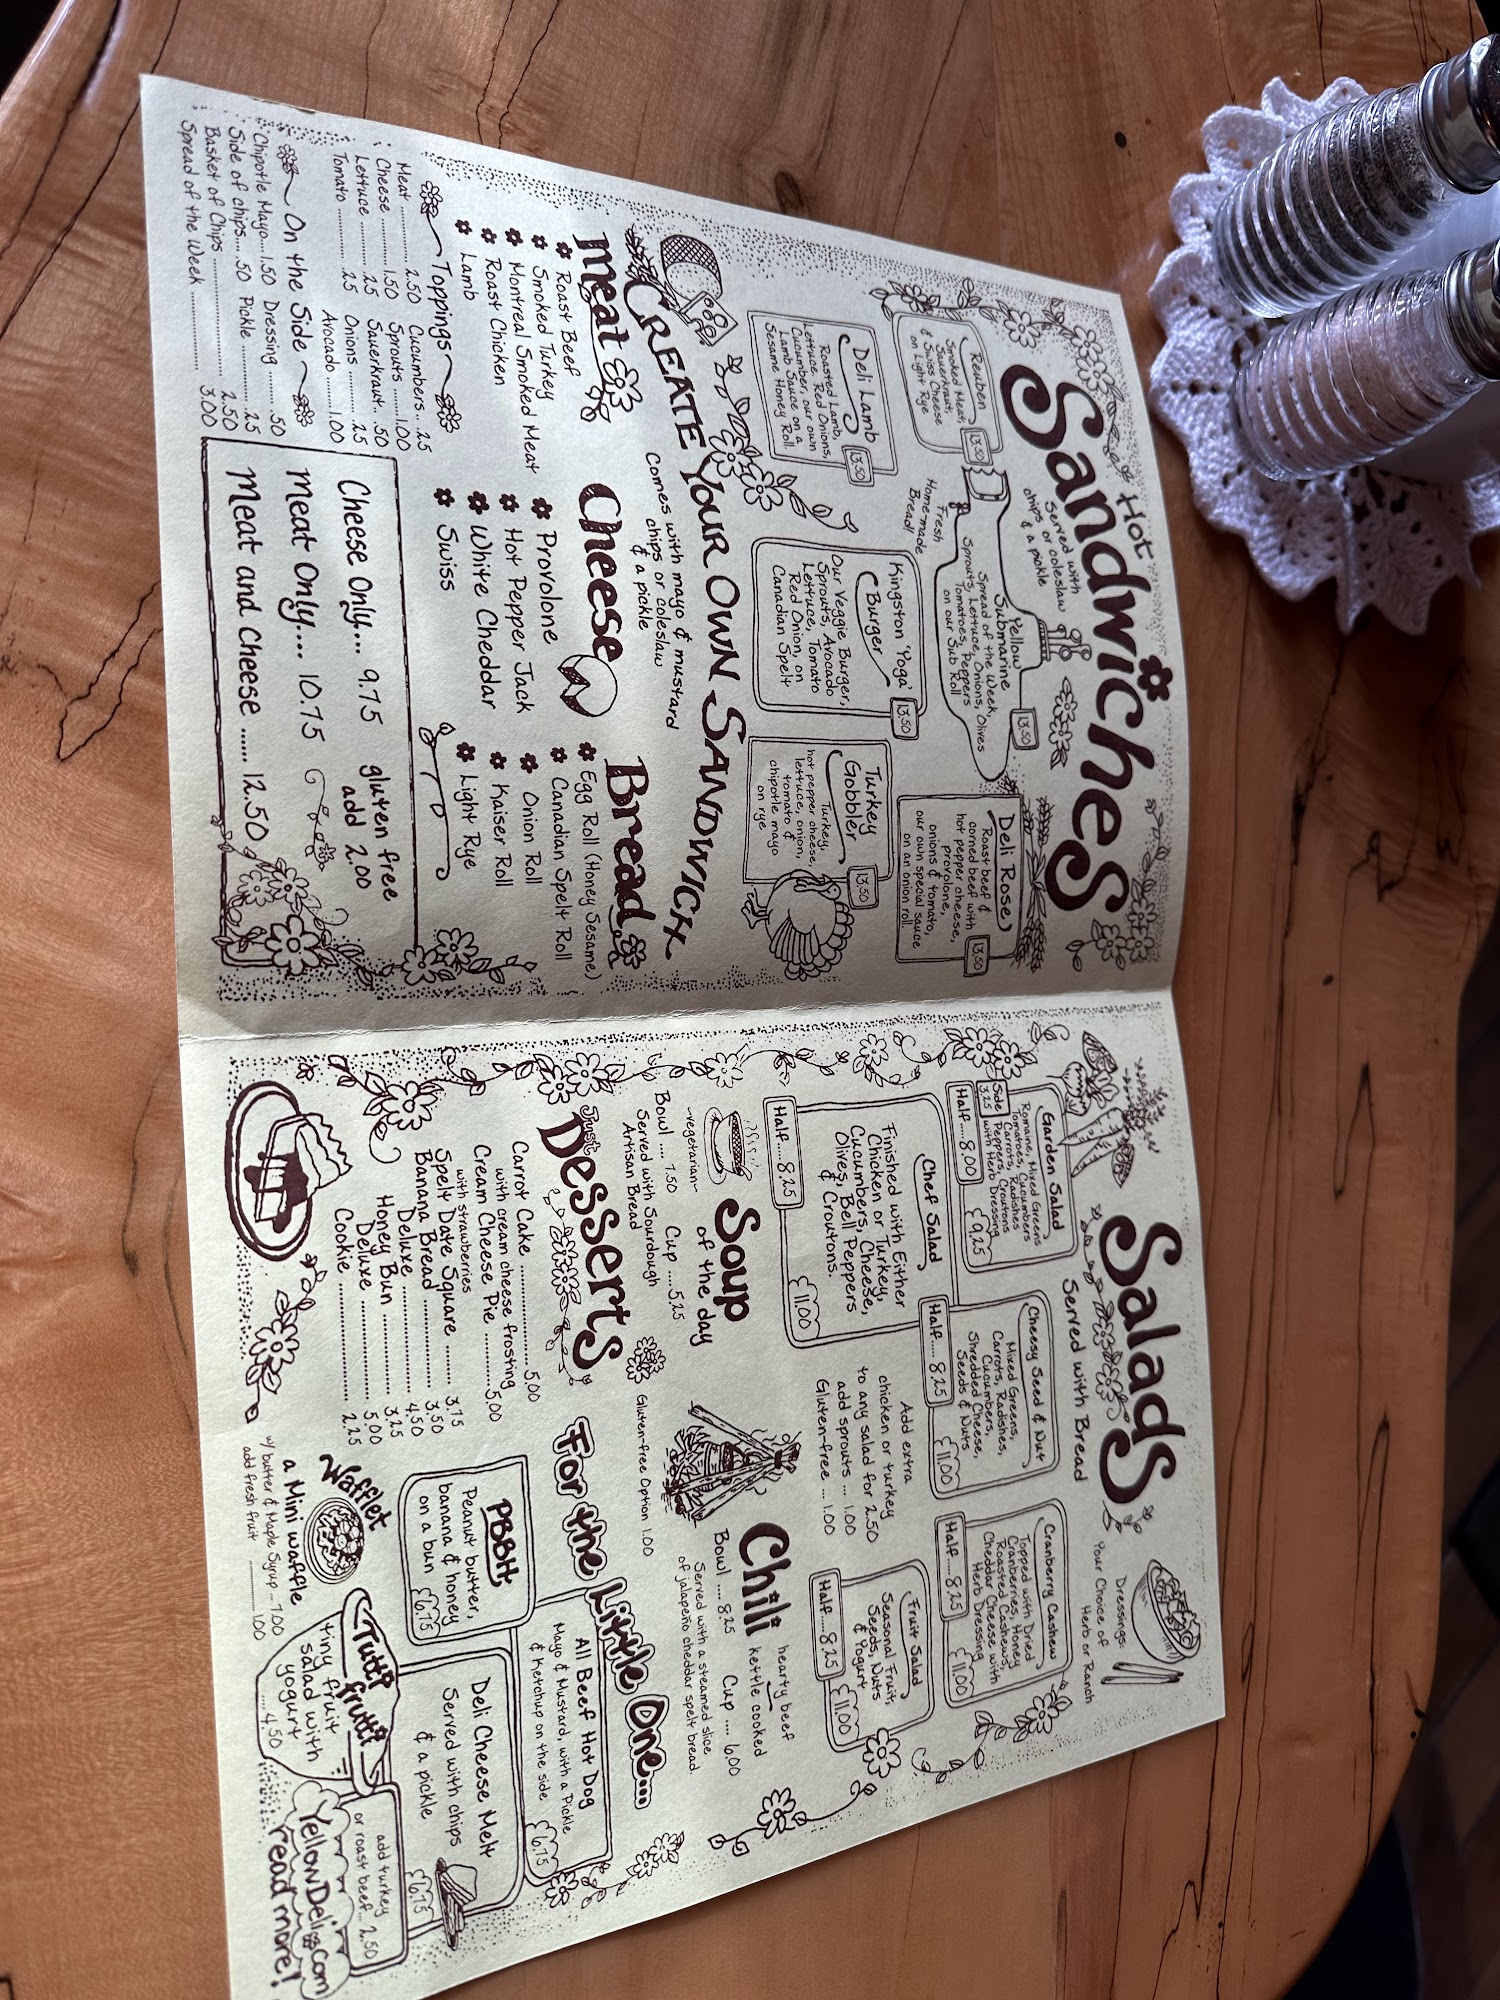 Hot
Sandwiches
Served with
chips or coleslaw
& a pickle
Reuben
Smoked Meat,
Sauerkraut,
& Swiss Cheese
on Light Rye
13.50
Fresh
Home-made
Bread!
Yellow
Submarine
Spread of the Week,
Sprouts, Lettuce, Onions, Olives
Tomatoes, Peppers
on our Sub Roll
13.50
Deli Rose
Roast beef &
corned beef with
hot pepper cheese,
provolone,
onions & tomato,
our own special sauce
on an onion roll.
13.50
Deli Lamb
Roasted Lamb,
Lettuce, Red Onions,
Cucumber, our own
Lamb Sauce on a
Sesame Honey Roll.
13.50
Kingston 'Yoga'
Burger
Our Veggie Burger,
Sprouts, Avocado
Lettuce, Tomato
Red Onion, on
Canadian Spelt
13.50
Turkey
Gobbler
Turkey,
hot pepper cheese,
lettuce, onion,
tomato &
chipotle mayo
on rye
13.50
CREATE YOUR OWN SANDWICH
Comes with mayo & mustard
chips or coleslaw
& a pickle
Meat
Roast Beef
Smoked Turkey
Montreal Smoked Meat
Roast Chicken
Lamb
Cheese
Provolone
Hot Pepper Jack
White Cheddar
Swiss
Bread
Egg Roll (Honey Sesame)
Canadian Spelt Roll
Onion Roll
Kaiser Roll
Light Rye
Toppings
Meat ......... 2.50 Cucumbers .. 25
Cheese ......... 1.50 Sprouts ..... 1.00
Lettuce ......... .25 Sauerkraut.. .50
Tomato ......... .25 Onions ......... .25
Avocado ...... 1.00
On the Side
Chipotle Mayo.... 1.50 Dressing ...... .50
Side of chips... .50 Pickle ......... .25
Basket of Chips ......... 2.50
Spread of the Week ......... 3.00
Cheese Only... 9.75
Meat Only.... 10.75
Meat and Cheese ...... 12.50
gluten free
add 2.00
Salads
Served with Bread
Dressings:
Your Choice of
Herb or Ranch
Garden Salad
Romaine, Mixed Greens
Tomatoes, Cucumbers
Carrots, Radishes
Peppers, Croutons
with Herb Dressing
Side
3.25
Half.....8.00
9.25
Cheesy Seed & Nut
Mixed Greens,
Carrots, Radishes,
Cucumbers,
Shredded Cheese,
Seeds & Nuts
Half.....8.25
11.00
Cranberry Cashew
Topped with Dried
Cranberries, Honey
Roasted Cashews,
Cheddar Cheese with
Herb Dressing
Half.....8.25
11.00
Chef Salad
Finished with Either
Chicken or Turkey,
Cucumbers, Cheese,
Olives, Bell Peppers
& Croutons.
Half.....8.25
11.00
Add extra
chicken or turkey
to any salad for 2.50
add sprouts ... 1.00
Gluten-free ... 1.00
Fruit Salad
Seasonal Fruit,
Seeds, Nuts
& Yogurt
Half.....8.25
11.00
Soup
of the day
~vegetarian~
Bowl .... 7.50 Cup .....5.25
Served with Sourdough
Artisan Bread
Chili
hearty beef
kettle cooked
Bowl .... 8.25 Cup .... 6.00
Served with a steamed slice
of jalapeño cheddar spelt bread.
Gluten-free Option 1.00
Just
Desserts
Carrot Cake ............ 5.00
with cream cheese frosting
Cream Cheese Pie ......... 5.00
with strawberries
Spelt Date Square ....... 3.75
Banana Bread ............ 3.50
Deluxe ............ 4.50
Honey Bun ............ 3.25
Deluxe ............ 5.00
Cookie ............ 2.25
For the Little One...
PBBH
Peanut butter,
banana & honey
on a bun
6.75
All Beef Hot Dog
Mayo & Mustard, with a Pickle
& Ketchup on the side
6.75
Deli Cheese Melt
Served with chips
& a pickle
6.75
add turkey
or roast beef... 2.50
Wafflet
a Mini waffle
w/ butter & Maple Syrup ... 7.00
add fresh fruit ......... 1.00
Tutti
frutti
tiny fruit
salad with
yogurt
.....4.50
YellowDeli.com
read more!